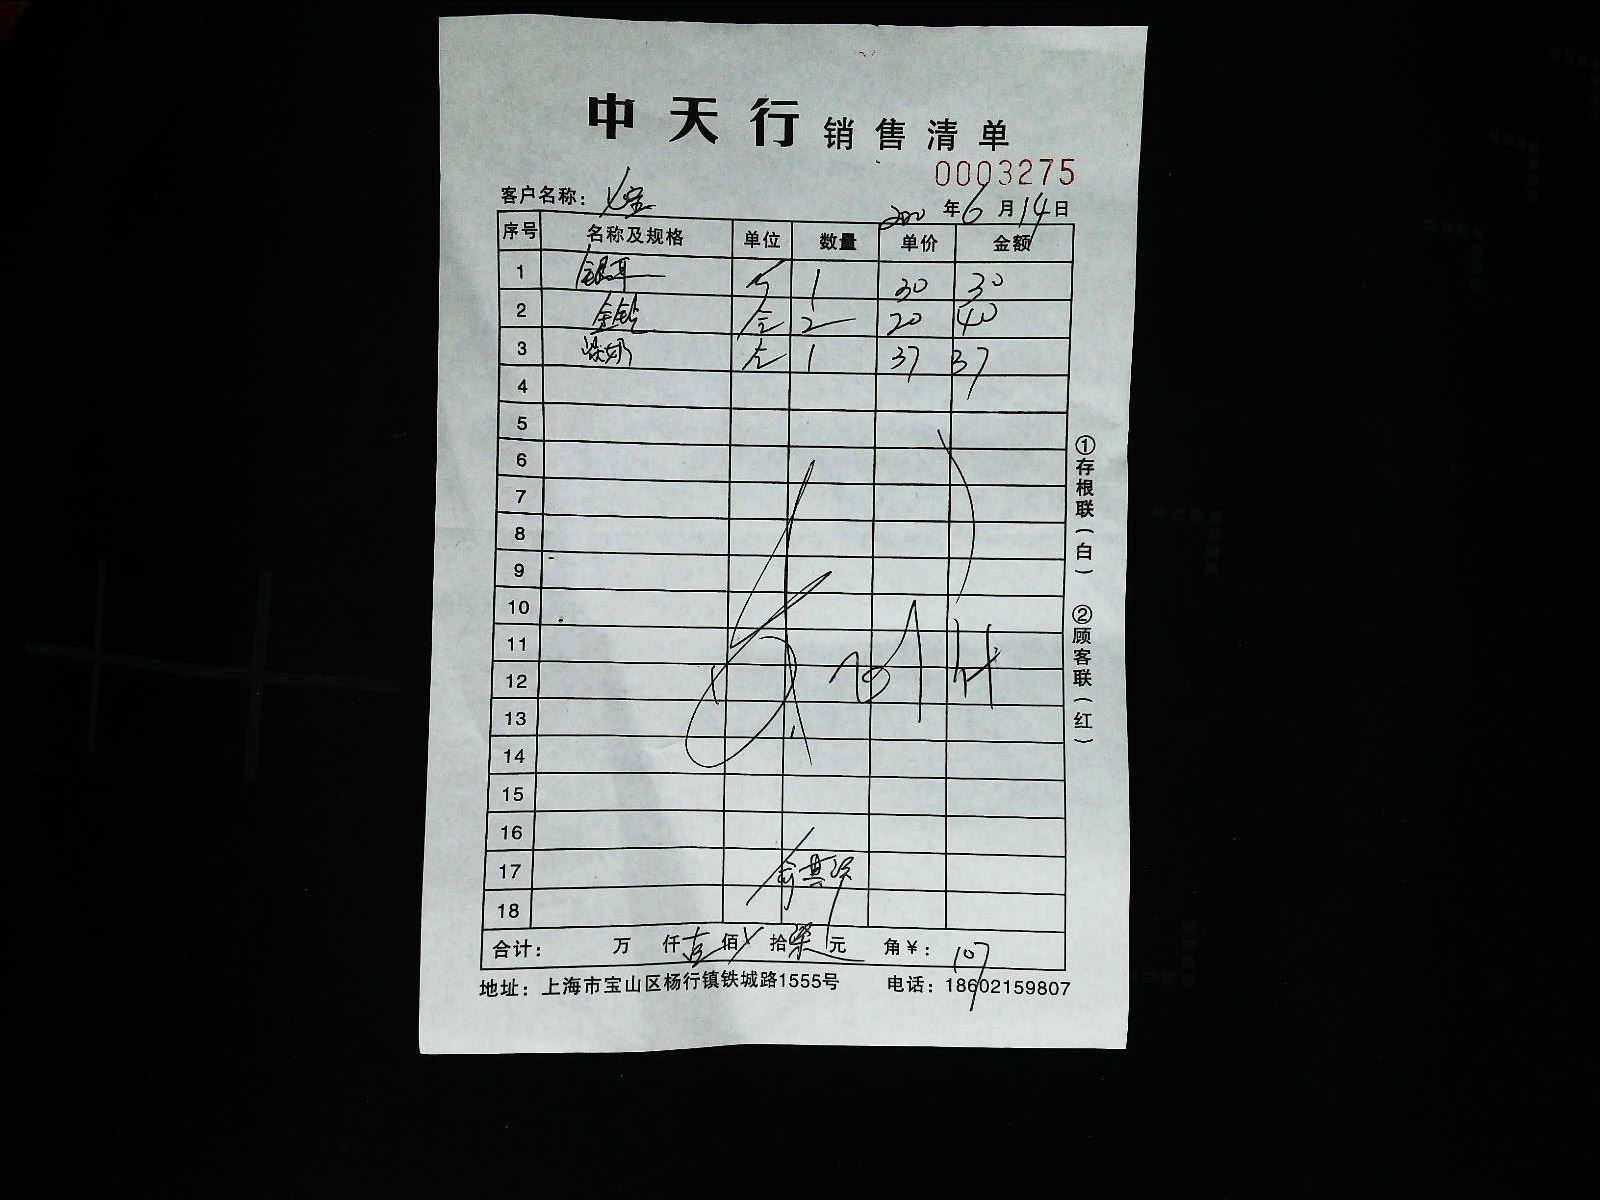 中天行 销售清单
0003275
客户名称：
年 6 月 14 日
序号 名称及规格 单位 数量 单价 金额
1 银耳 1 30 30
2 2 20 40
3 1 37 37
4
5
6
7
8
9
10
11
12
13
14
15
16
17
18
合计： 万 仟 壹 佰 拾 柒 元 角 ¥： 107
地址：上海市宝山区杨行镇铁城路1555号 电话：18602159807
①存根联（白） ②顾客联（红）